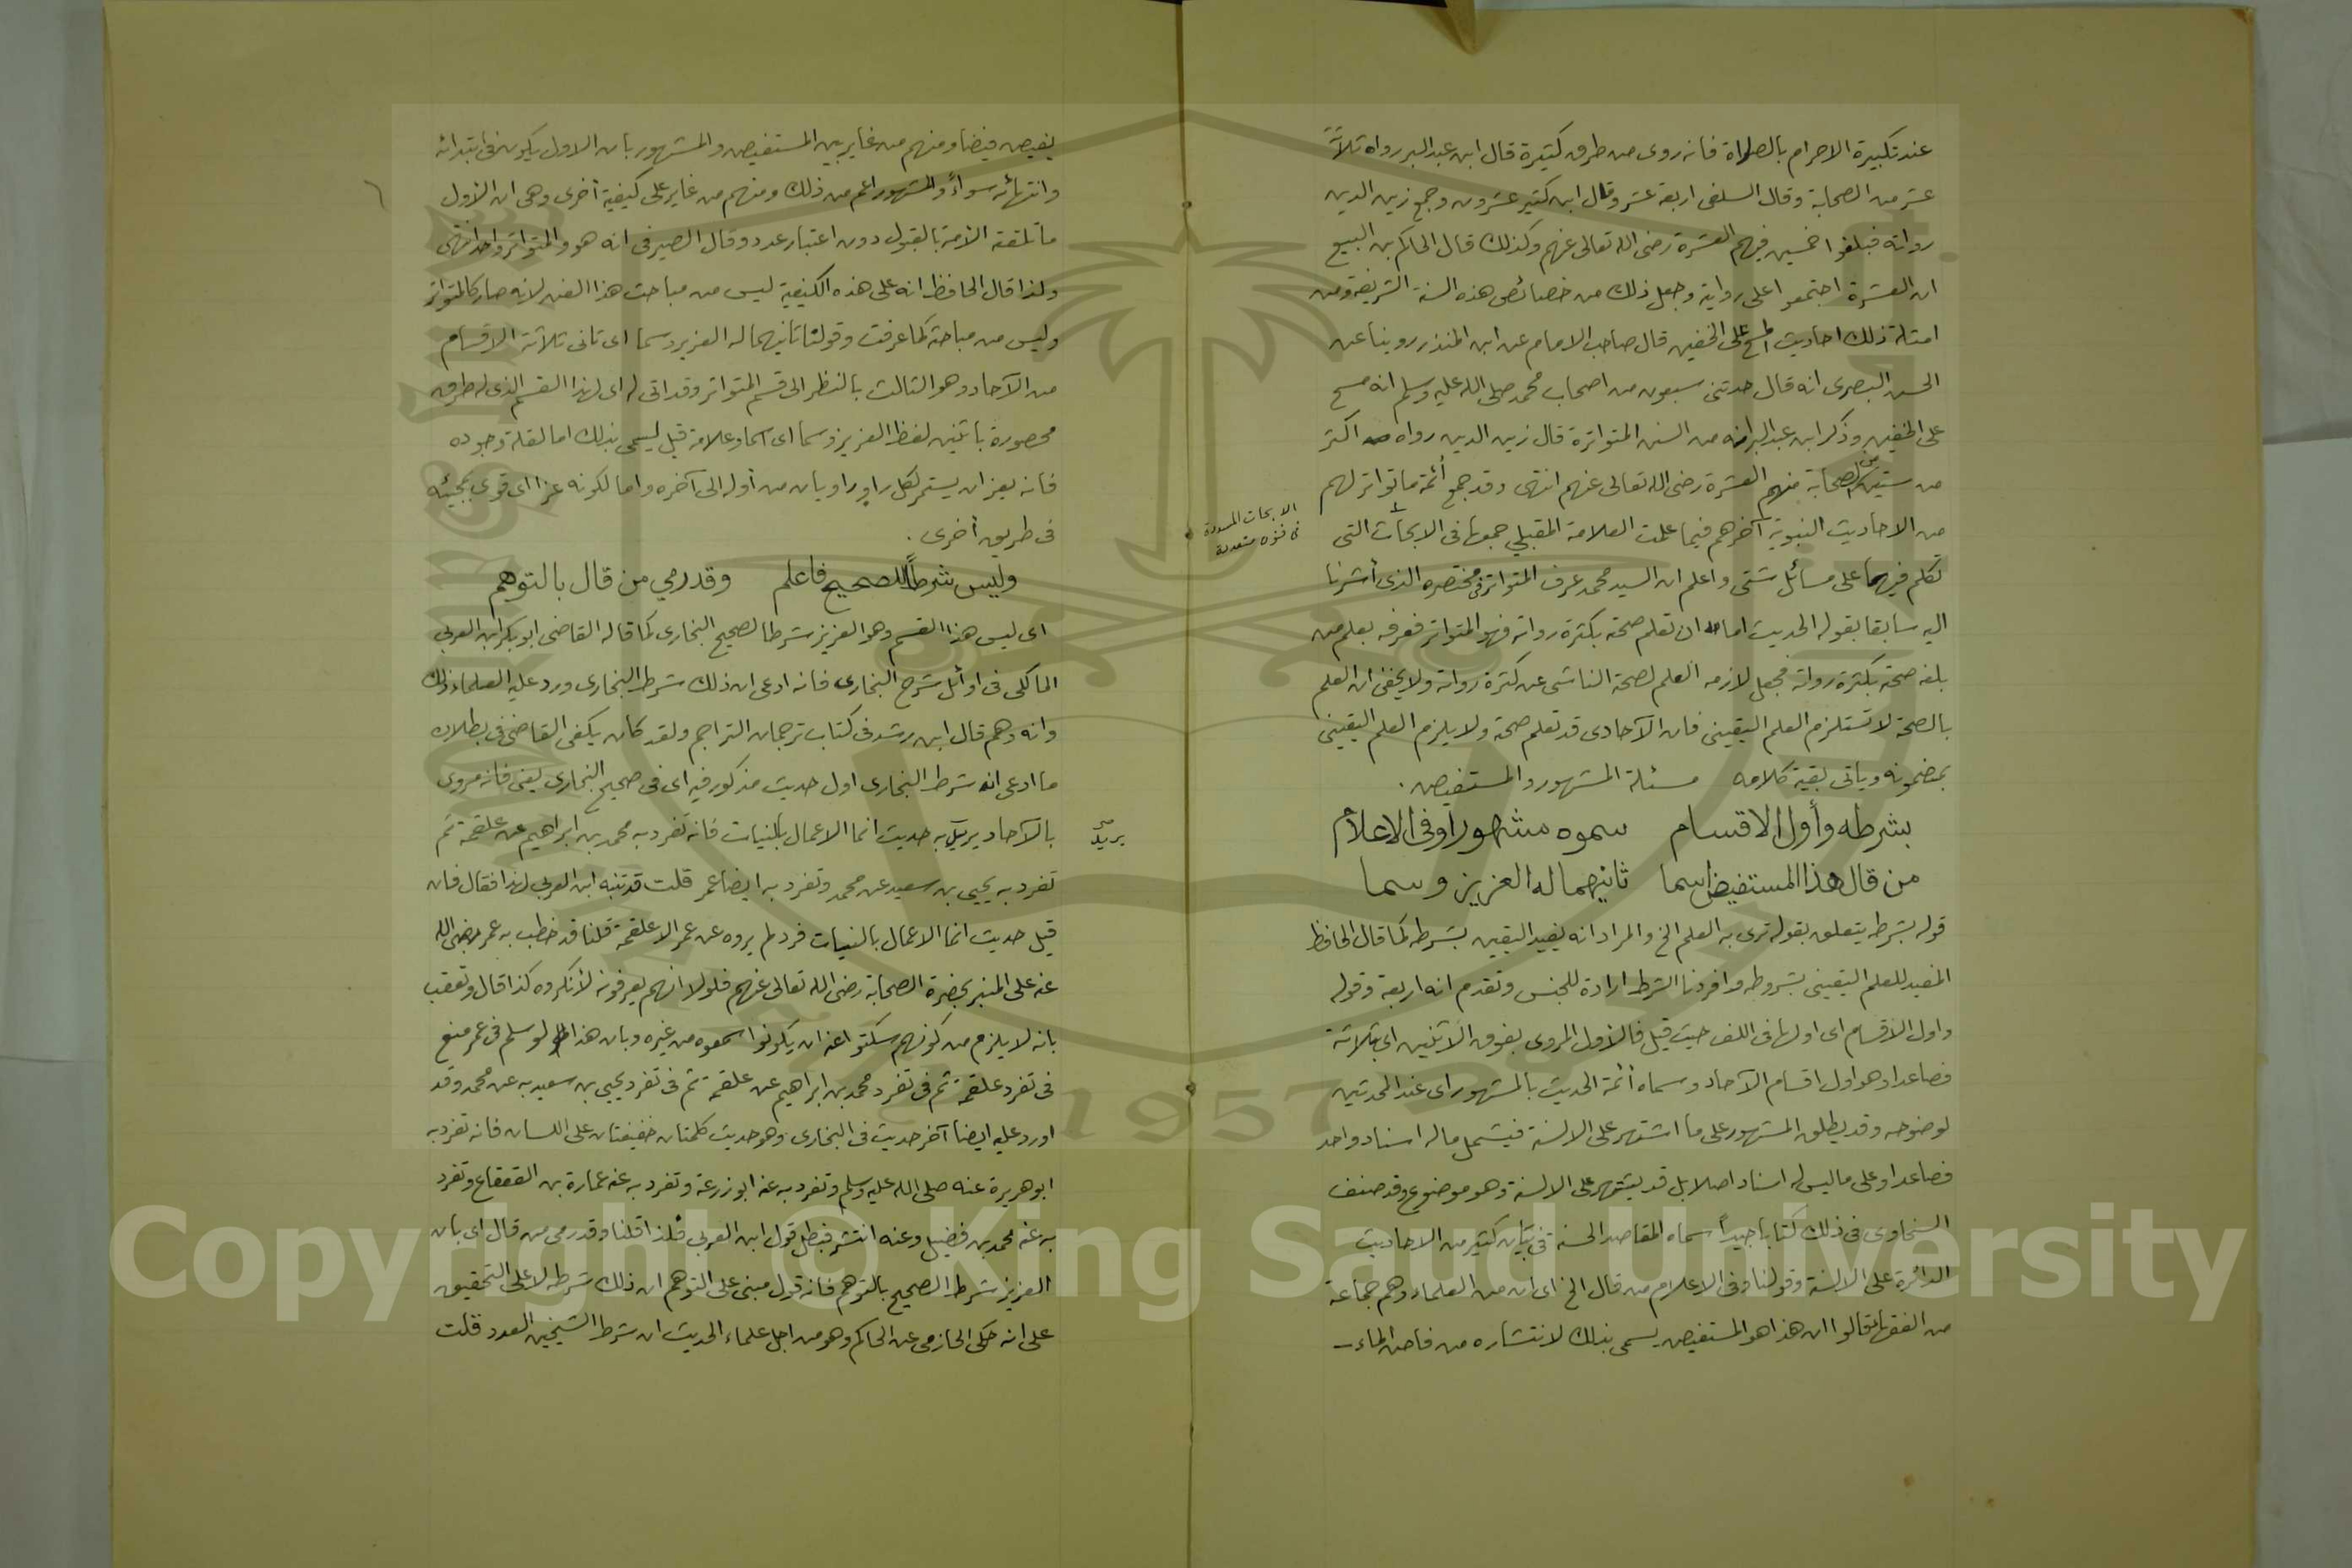 عند تكبيرة الاحرام بالصلاة فانه روى من طرق كثيرة قال ابن عبد البر رواه ثلاثة
عشر من الصحابة وقال السلفى اربعة عشر وقال ابن كثير عشرون وجمع زين الدين
رواته فبلغوا خمسين فيهم العشرة رضى الله تعالى عنهم وكذلك قال الحاكم بن البيع
ان العشرة اجتمعوا على رواية وجعل ذلك من خصائص هذه السنة الشريفة ومن
امثلة ذلك احاديث المسح على الخفين قال صاحب الامام عن ابن المنذر روينا عن
الحسن البصرى انه قال حدثنى سبعون من اصحاب محمد صلى الله عليه وسلم انه مسح
على الخفين وذكر ابن عبد البر انه من السنن المتواترة قال زين الدين رواه اكثر
من ستين من الصحابة منهم العشرة رضى الله تعالى عنهم انتهى وقد جمع أئمة ما تواتر لهم
من الاحاديث النبوية آخرهم فيما علمت العلامة المقبلي جمعها فى الابحاث التى
الابحاث المسددة
فى فنون متعددة
تكلم فيها على مسائل شتى واعلم ان السيد محمد عرف المتواتر فى مختصره الذى أشرنا
اليه سابقا بقوله الحديث اما ان تعلم صحته بكثرة رواته فهو المتواتر فعرفه بعلم من
بلغه صحته بكثرة رواته فجعل لازمه العلم لصحة الناشى عن كثرة رواته ولا يخفى ان العلم
بالصحة لا تستلزم العلم اليقينى فان الآحادى قد تعلم صحته ولا يلزم العلم اليقينى
بمضمونه وياتى بقية كلامه مسئلة المشهور والمستفيض .
بشرطه وأول الاقسام سموه مشهورا وفى الاعلام
من قال هذا المستفيض اسما ثانيهما له العزيز وسما
قوله بشرطه يتعلق بقوله ترى به العلم الخ والمراد انه يفيد اليقين بشرطه كما قال الحافظ
المفيد للعلم اليقينى بشروطه وافردنا الشرط ارادة للجنس وتقدم انه اربعة وقوله
واول الاقسام اى اولها فى اللف حيث قيل فالأول المروى بفوق الاثنين اى بثلاثة
فصاعدا وهو اول اقسام الآحاد وسماه أئمة الحديث بالمشهور اى عند المحدثين
لوضوحه وقد يطلق المشهور على ما اشتهر على الالسنة فيشمل ماله اسناد واحد
فصاعدا وعلى ما ليس له اسناد اصلا بل قد يشتهر على الالسنة وهو موضوع وقد صنف
السخاوى فى ذلك كتابا جيداً سماه المقاصد الحسنة فى بيان كثير من الاحاديث
الدائرة على الالسنة وقولنا وفى الاعلام من قال الخ اى ان من العلماء وهم جماعة
من الفقهاء قالوا ان هذا هو المستفيض يسمى بذلك لانتشاره من فاض الماء
يفيض فيضا ومنهم من غاير بين المستفيض والمشهور بان الاول يكون فى ابتدائه
وانتهائه سواءً والمشهور اعم من ذلك ومنهم من غاير على كيفية أخرى وهى ان الأول
ما تلقته الأمة بالقبول دون اعتبار عدد وقال الصيرفى انه هو والمتواتر واحد انتهى
ولذا قال الحافظ انه على هذه الكيفية ليس من مباحث هذا الفن لانه صار كالمتواتر
وليس من مباحثه كما عرفت وقولنا ثانيهما له العزيز وسما اى ثانى ثلاثة الاقسام
من الآحاد وهو الثالث بالنظر الى قسم المتواتر وقد اتى له اى لهذا القسم الذى له طرق
محصورة باثنين لفظ العزيز وسما اى اسما وعلامة قيل ليسمى بذلك اما لقلة وجوده
فانه يعز ان يستمر لكل راوٍ راويان من أوله الى آخره واما لكونه عزا اى قوى بمجيئه
فى طريق أخرى .
وليس شرطاً للصحيح فاعلم وقد رمي من قال بالتوهم
اى ليس هذا القسم وهو العزيز شرطا لصحيح البخارى كما قاله القاضى ابو بكر ابن العربى
المالكى فى اوائل شرح البخارى فانه ادعى ان ذلك شرط البخارى ورد عليه العلماء ذلك
وانه وهم قال ابن رشد فى كتاب ترجمان التراجم ولقد كان يكفى القاضى فى بطلان
ما ادعى انه شرط البخارى اول حديث مذكور فيه اى فى صحيح البخارى يعنى فانه مروى
بالآحاد يريد به حديث انما الاعمال بالنيات فانه تفرد به محمد بن ابراهيم عن علقمة ثم
صح
يريد
تفرد به يحيى بن سعيد عن محمد وتفرد به ايضا عمر قلت قد تنبه ابن العربى لهذا فقال فان
قيل حديث انما الاعمال بالنيات فرد لم يروه عن عمر الا علقمة قلنا قد خطب به عمر رضى الله
عنه على المنبر بحضرة الصحابة رضى الله تعالى عنهم فلولا انهم يعرفونه لأنكروه كذا قال وتعقب
بانه لا يلزم من كونهم سكتوا عنه ان يكونوا سمعوه من غيره وبان هذا لو سلم فى عمر منع
فى تفرد علقمة ثم فى تفرد محمد بن ابراهيم عن علقمة ثم فى تفرد يحيى بن سعيد به عن محمد وقد
اورد عليه ايضا آخر حديث فى البخارى وهو حديث كلمتان خفيفتان على اللسان فانه تفرد به
ابو هريرة عنه صلى الله عليه وسلم وتفرد به عنه ابو زرعة وتفرد به عنه عمارة بن القعقاع وتفرد
به عنه محمد بن فضيل وعنه انتشر فبطل قول ابن العربى فلذا قلنا وقد رمى من قال اى بان
العزيز شرط الصحيح بالتوهم فانه قول مبنى على التوهم ان ذلك شرطه لا على التحقيق
على انه حكى الحازمى عن الحاكم وهو من اجل علماء الحديث ان شرط الشيخين العدد قلت
1957
Copyright © King Saud University